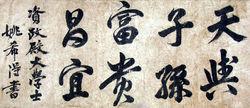 天與
子孫
富貴
昌宜
資政殿大學士
姚希得書